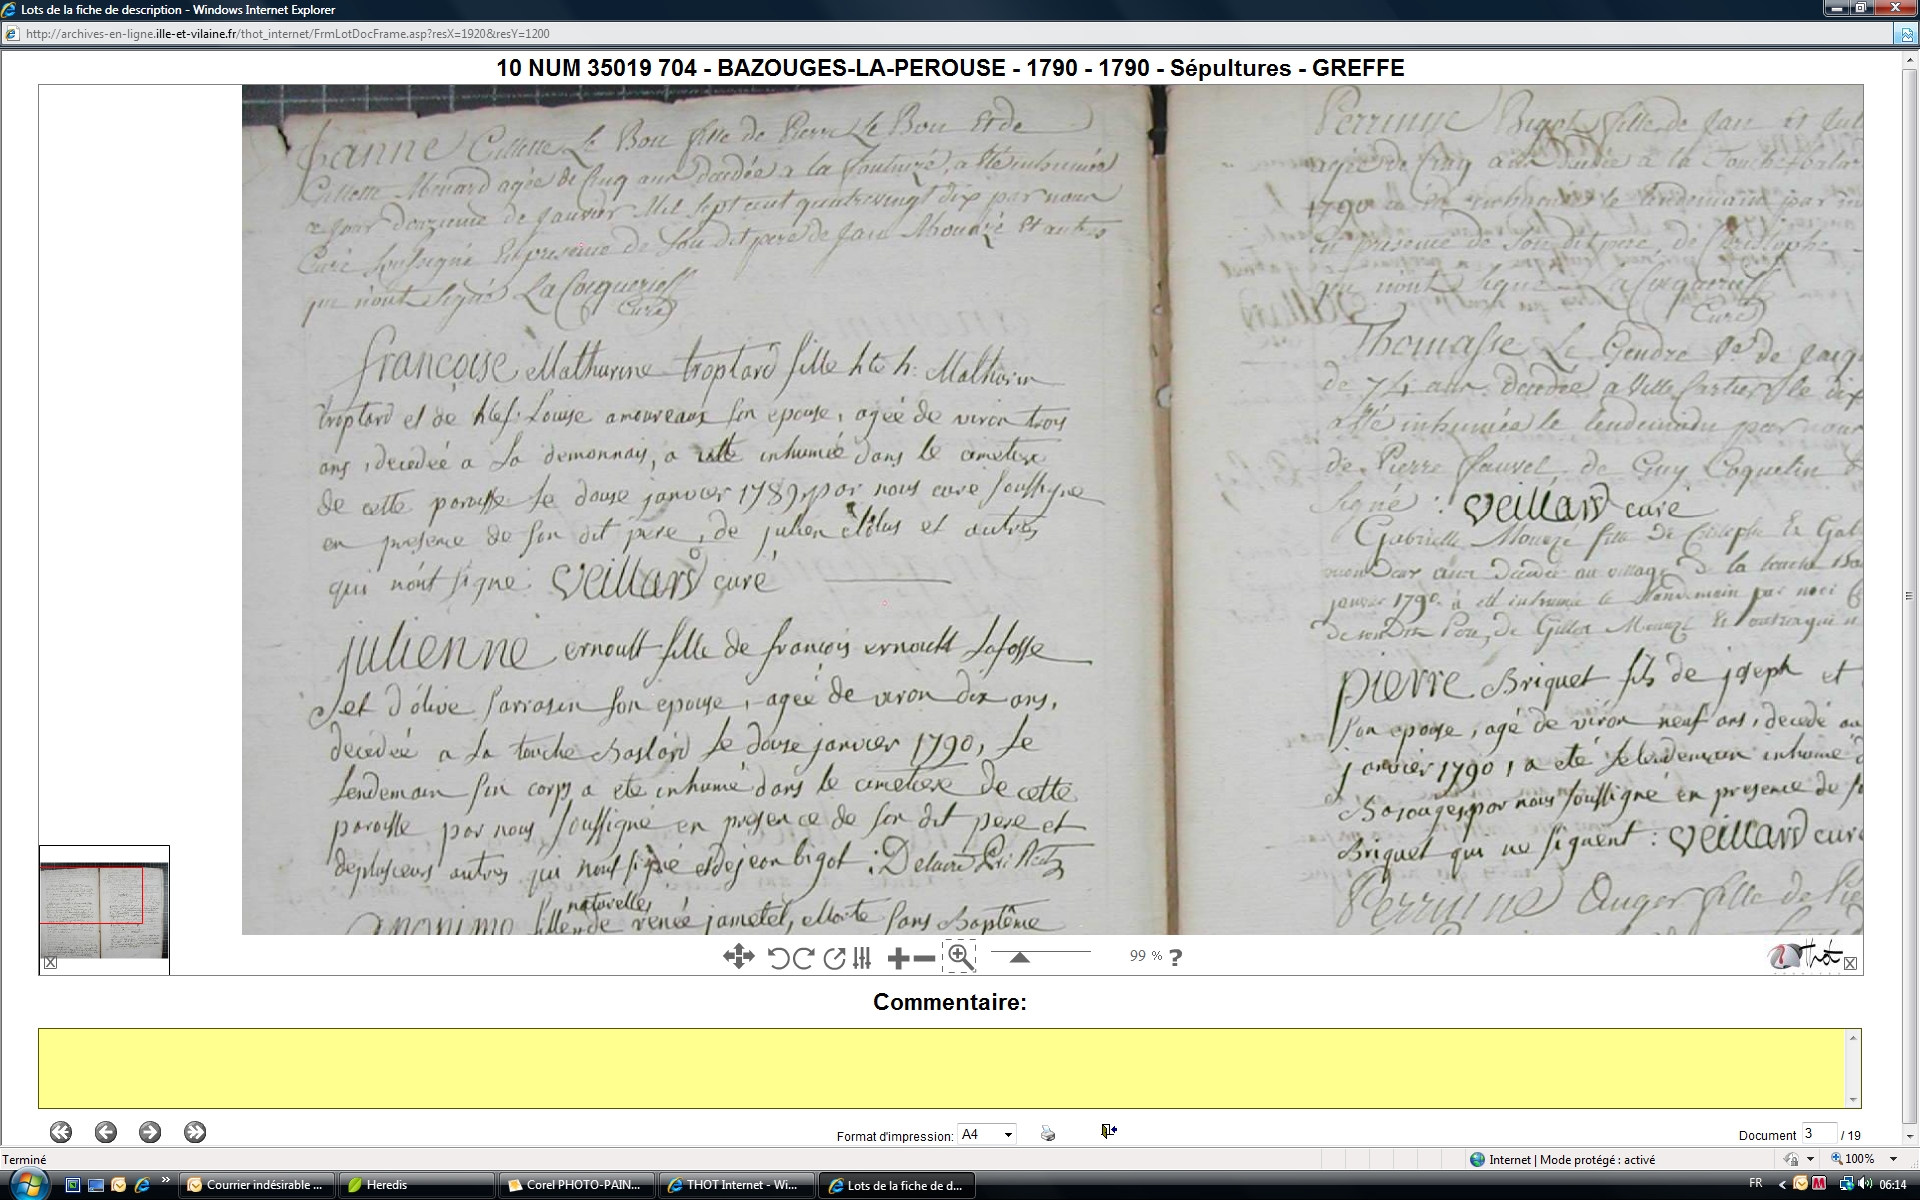 Lots de la fiche de description - Windows Internet Explorer
http://archives-en-ligne.ille-et-vilaine.fr/thot_internet/FrmLotDocFrame.asp?resX=1920&resY=1200
10 NUM 35019 704 - BAZOUGES-LA-PEROUSE - 1790 - 1790 - Sépultures - GREFFE
Jeanne Le Bon fille de Pierre Le Bon et de
agée de Cinq ans decedée a la a été inhumée
ce jour douzieme de Janvier Mil Sept cent quatrevingt dix par nous
Curé Soussigné En presence de Son dit pere de Jan Et autres
qui n'ont Signé
Curé
françoise Mathurine troptard fille hte h. Mathurin
troptard et de hte f. Louise amoureaux son epouse, agéé de viron trois
ans, decedéé a La demonnais, a eté inhumée dans le cimetiere
de cette paroisse le douse janvier par nous curé soussigné
en presence de son dit pere, de julien et autres
qui n'ont signé: veillard curé
julienne ernoult fille de françois ernoult Lafosse
et d'olive sarrasin son epouse, agéé de viron dix ans,
decedéé a La touche Baslard le douse janvier 1790, le
lendemain son corps a eté inhumé dans le cimetiere de cette
paroisse par nous soussigné en presence de son dit pere et
de plusieurs autres qui n'ont signé et de jean bigot :
naturelles
anonimo filles de renéé jametel, Morte sans Baptême
Perrinne Bigot fille de Jan et
agée de Cinq ans a la Touche
1790 a été inhumée le lendemain par
en presence de Son dit pere, de Christophe
qui n'ont Signé
Curé
Thomasse Le Gendre de
de 74 ans decedée a Ville Cartier le dix
a été inhumée le lendemain par nous
de Pierre fauvel, de Guy Coquelin
signé : veillard curé
Gabrielle Mouazé fille de Cristophe Et
ans decedée au village de la touche
janvier 1790. a eté inhumée le landemain par
de son dit Pere, de Gilles Mouazé Et autres qui
pierre Briquet fils de joseph et
son epouse, agé de viron neuf ans, decedé au
janvier 1790, a eté le lendemain inhumé
Basouges par nous soussigné en presence de
Briquet qui ne signent : veillard curé
Perrinne Auger fille de
99 % ?
Thot
Commentaire:
Format d'impression: A4
Document 3 / 19
Terminé
Internet | Mode protégé : activé
100%
Courrier indésirable ...
Heredis
Corel PHOTO-PAIN...
THOT Internet - Wi...
Lots de la fiche de d...
FR
06:14